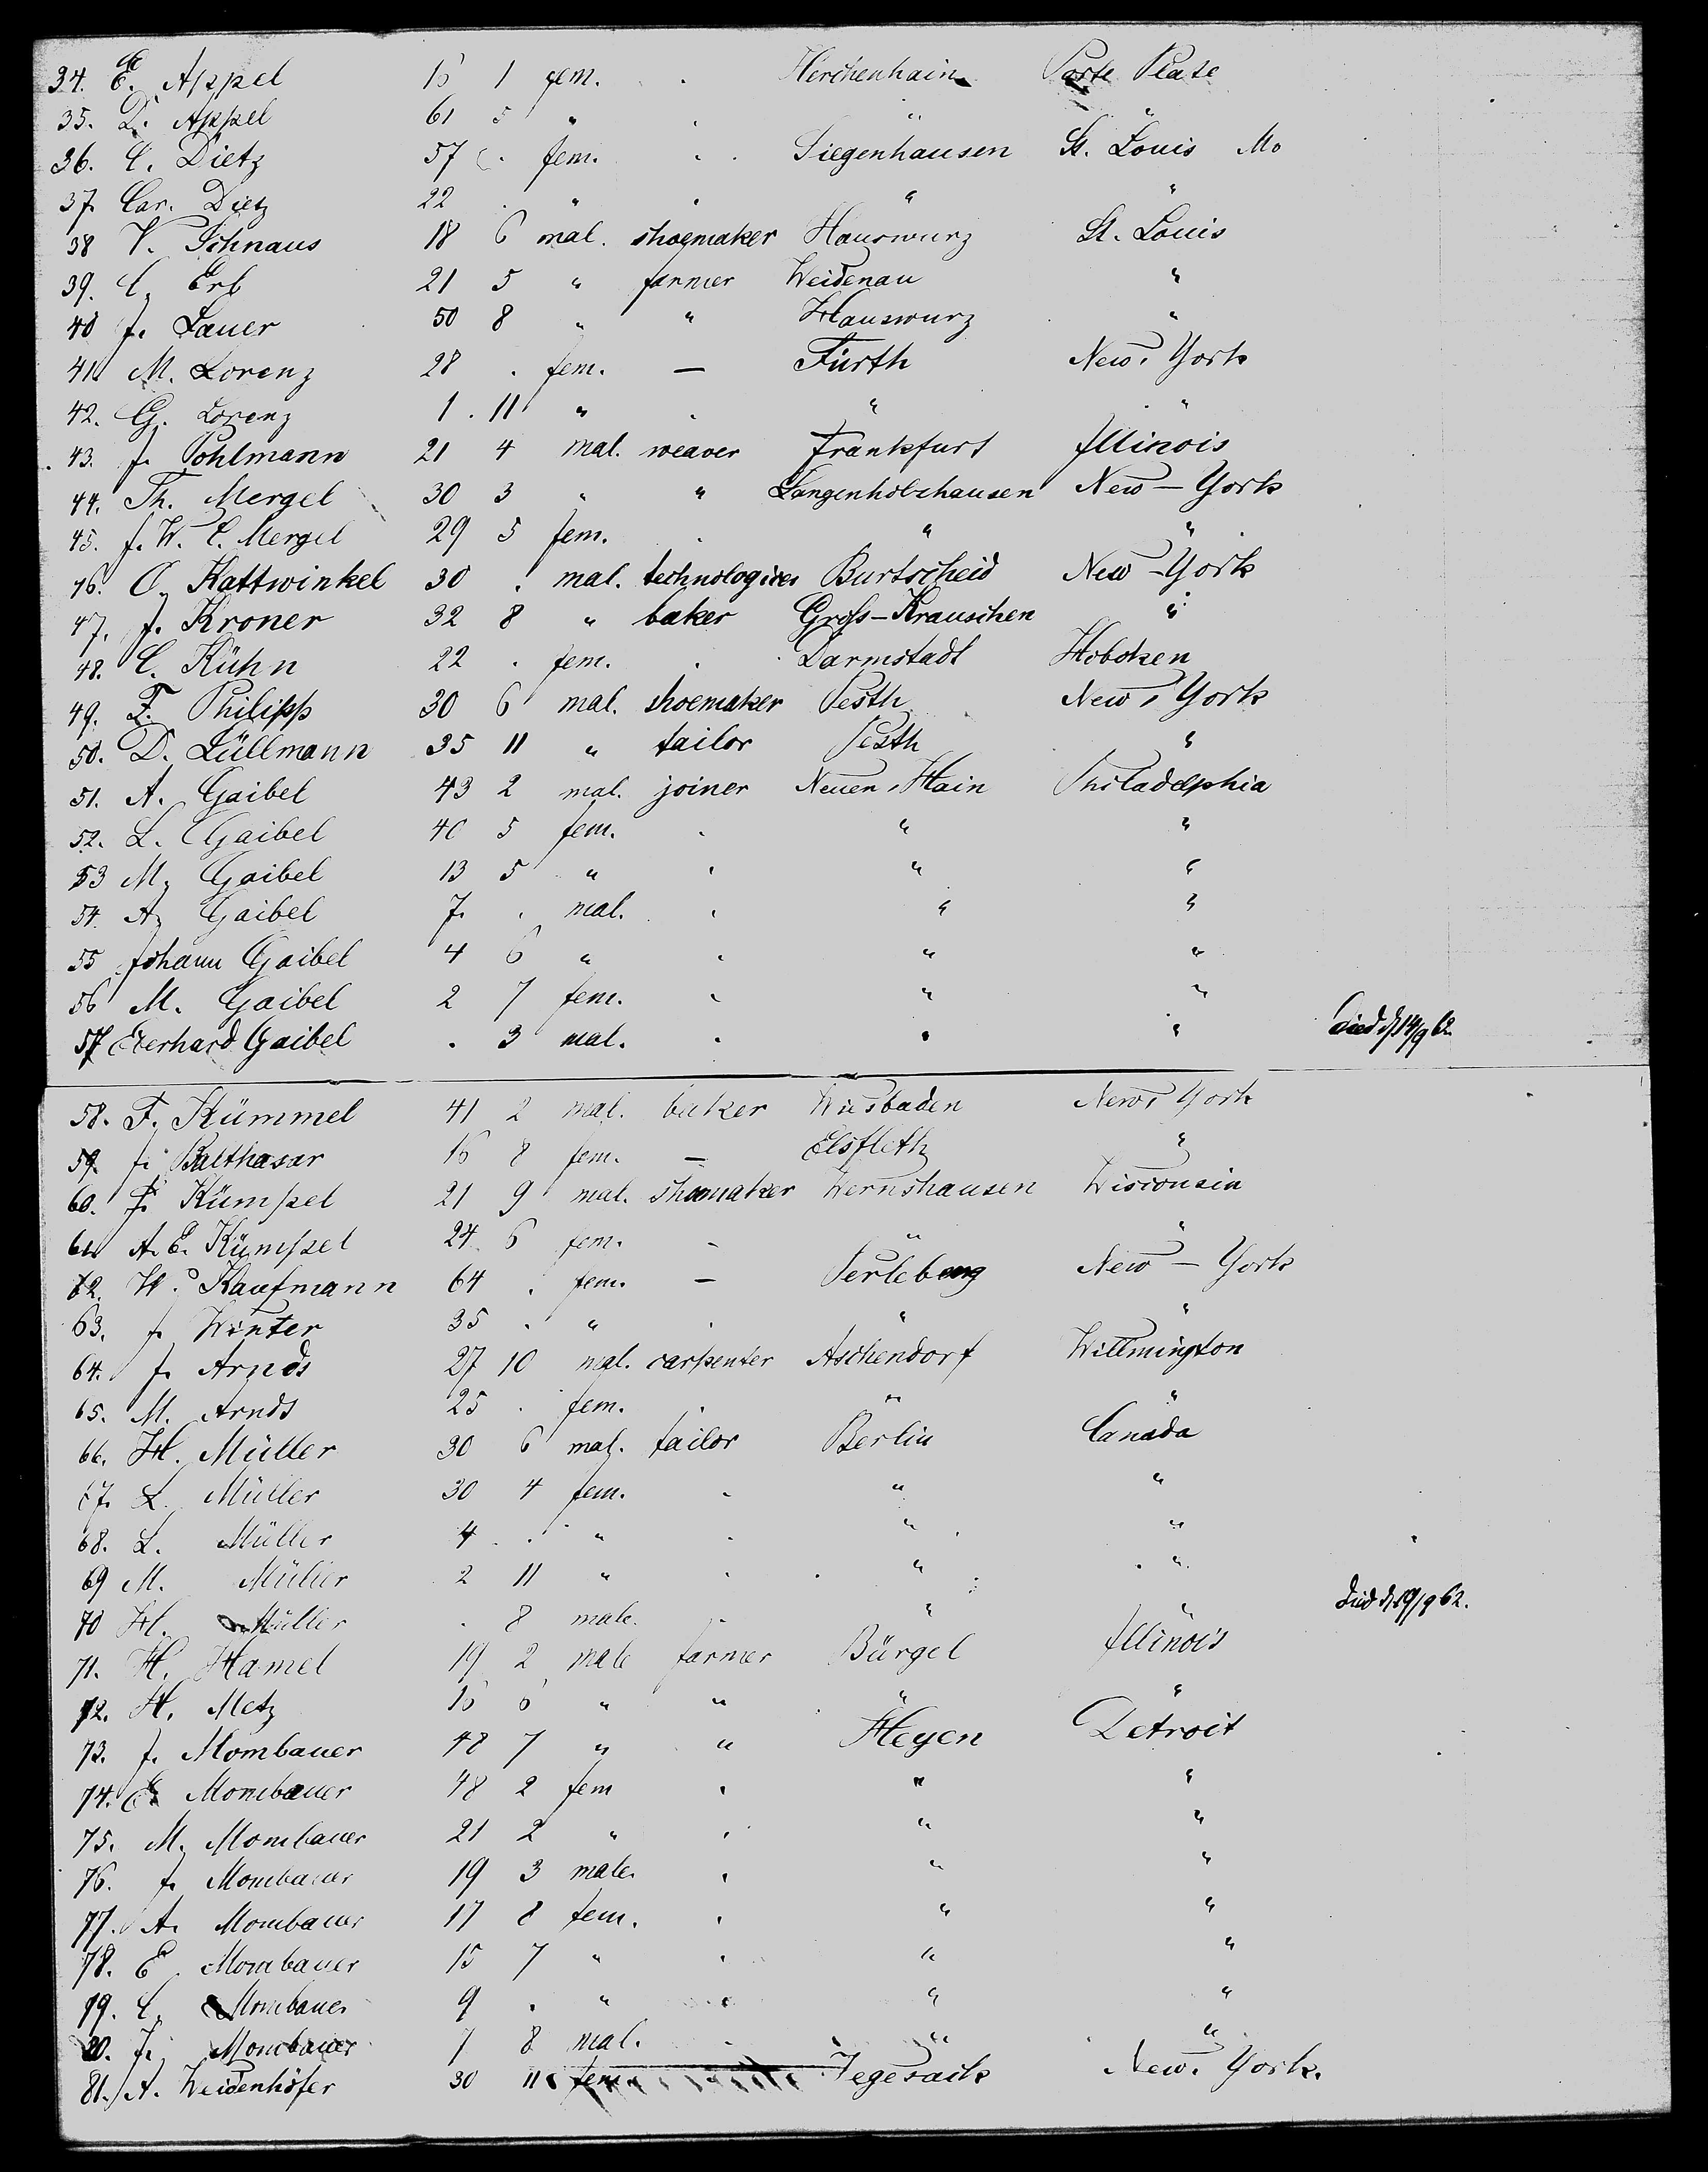 34. E. Appel 16 1 fem. . Herchenhain Porte Plate
35. D. Appel 61 5 " . " "
36. C. Dietz 57 . fem. . Siegenhausen St. Louis Mo
37. Car. Dietz 22 . " " " "
38 V. Schnaus 18 6 mal. shoemaker Hauswurz St. Louis
39. C. Erb 21 5 " farmer Weidenau "
40 J. Lauer 50 8 " " Hauswurz "
41. M. Lorenz 28 . fem. — Fürth New-York
42. G. Lorenz 1 . 11 " . " "
43. J. Pohlmann 21 4 mal. weaver Frankfurt Illinois
44. Th. Mergel 30 3 " " Langenholzhausen New-York
45. J. W. C. Mergel 29 5 fem. . " "
46. O. Kattwinkel 30 . mal. Burtscheid New-York
47. J. Kroner 32 8 " baker Gross-Krauschen "
48. C. Kühn 22 . fem. . Darmstadt Hoboken
49. F. Philipp 30 6 mal. shoemaker Pesth New-York
50. D. Lüllmann 35 11 " tailor Pesth "
51. A. Gaibel 43 2 mal. joiner Neuen-Hain Philadelphia
52. L. Gaibel 40 5 fem. . " "
53 M. Gaibel 13 5 " . " "
54. A. Gaibel 7. . mal. . " "
55 Johann Gaibel 4 6 " . " "
56 M. Gaibel 2 7 fem. . " "
57 Eberhard Gaibel . 3 mal. . " " Died d. 14/9 62.
58. F. Kümmel 41 2 mal. baker Wiesbaden New-York
59. J. Balthasar 16 8 fem. — Elsfleth "
60. J. Kümpel 21 9 mal. shoemaker Wernshausen Wisconsin
61. A. E. Kümpel 24 6 fem. - " "
62. W. Kaufmann 64 . fem. — Perleberg New-York
63. J. Winter 35 . " . " "
64. J. Arnds 27 10 mal. carpenter Aschendorf Willmington
65. M. Arnds 25 . fem. . " "
66. H. Müller 30 6 mal. tailor Berlin Canada
67. L. Müller 30 4 fem. . " "
68. L. Müller 4 . " . " "
69 M. Müller 2 11 " . " "
70 H. Müller . 8 male. . " " Died d. 19/9 62.
71. H. Hamel 19 2 male farmer Bürgel Illinois
72. H. Metz 16 6 " " " "
73. J. Mombauer 48 7 " " Heyen Detroit
74. E. Mombauer 48 2 fem . " "
75. M. Mombauer 21 2 " . " "
76. J. Mombauer 19 3 male. . " "
77. A. Mombauer 17 8 fem. . " "
78. E. Mombauer 15 7 " . " "
79. C. Mombauer 9 . " . " "
80. J. Mombauer 7 8 mal. . " "
81. A. Weidenhöfer 30 11 fem. Vegesack New-York.